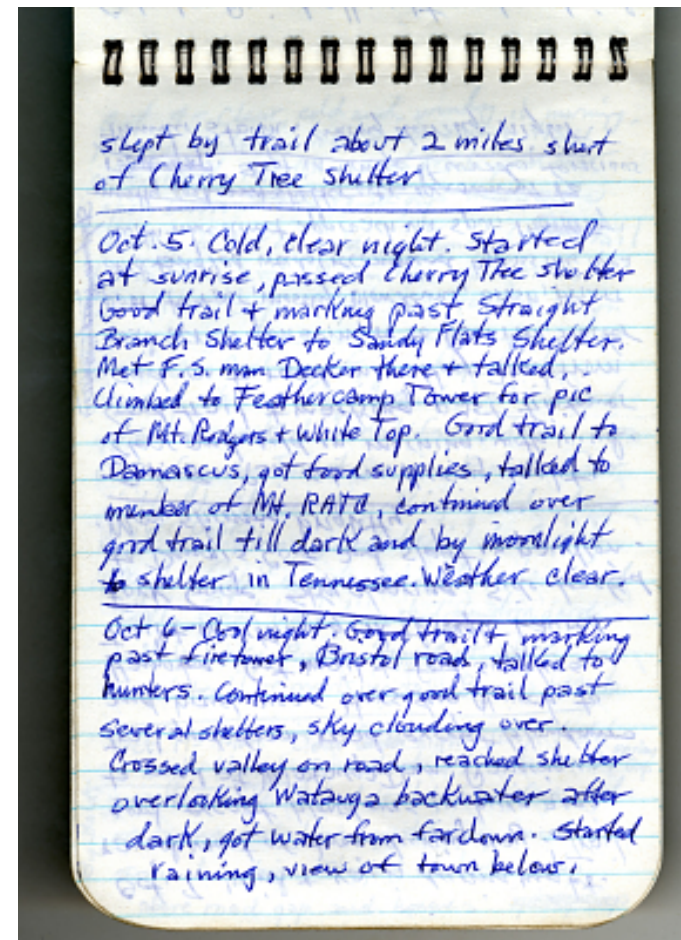 slept by trail about 2 miles short
of Cherry Tree shelter
Oct. 5. Cold, clear night. Started
at sunrise, passed Cherry Tree shelter
Good trail + marking past Straight
Branch Shelter to Sandy Flats Shelter.
Met F.S. man Decker there + talked,
Climbed to Feathercamp Tower for pic
of Mt. Rodgers + White Top. Good trail to
Damascus, got food supplies, talked to
member of Mt. RATC, continued over
good trail till dark and by moonlight
to shelter in Tennessee. Weather clear.
Oct 6 - Cool night. Good trail + marking
past firetower, Bristol roads, talked to
hunters. Continued over good trail past
several shelters, sky clouding over.
Crossed valley on road, reached shelter
overlooking Watauga backwater after
dark, got water from far down. Started
raining, view of town below.